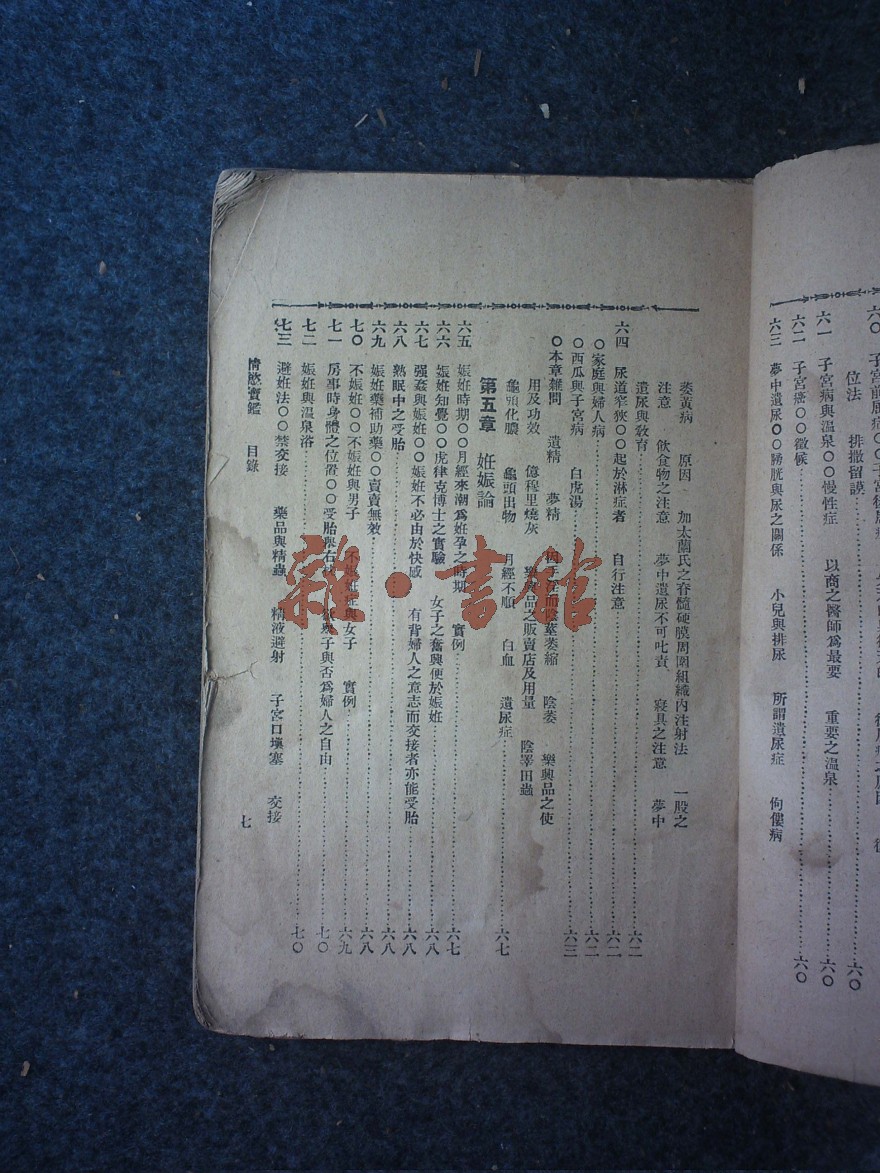 六〇 子宮前屈症〇〇子宮後屈症
位法 排撒留謨……六〇
六一 子宮病與溫泉〇〇慢性症 以商之醫師爲最要 重要之溫泉……六〇
六二 子宮癌〇〇徵候……六〇
六三 夢中遺尿〇〇膀胱與尿之關係 小兒與排尿 所謂遺尿症 佝僂病
萎黃病 原因 加太蘭氏之脊髓硬膜周圍組織內注射法 一般之
注意 飲食物之注意 夢中遺尿不可叱責、 寢具之注意 夢中
遺尿與敎育……六二
六四 尿道窄狹〇〇起於淋症者 自行注意……六二
〇家庭與婦人病……六二
〇西瓜與子宮病 白虎湯……六三
〇本章雜問 遺精 夢精 因手淫而陰莖萎縮 陰萎 樂興品之使
用及功效 億程里燒灰 樂興品之販賣店及用量 陰睪田蟲
龜頭化膿 龜頭出物 月經不順 白血 遺尿症……六七
第五章 妊娠論
六五 娠妊時期〇〇月經來潮爲妊孕之時期 實例……六七
六六 娠妊知覺〇〇虎律克博士之實驗 女子之奮興便於娠妊……六八
六七 强姦與娠妊〇〇娠妊不必由於快感 有背婦人之意志而交接者亦能受胎……六八
六八 熟眠中之受胎……六八
六九 娠妊藥補助藥〇〇賣賣無效……六八
七〇 不娠妊〇〇不娠妊與男子 不娠妊症與女子 實例……六九
七一 房事時身體之位置〇〇受胎與右 與子與否爲婦人之自由……七〇
七二 娠妊與溫泉浴……七〇
七三 避妊法〇〇禁交接 藥品與精蟲 精液避射 子宮口塡塞 交接
情慾寶鑑 目錄 七
雜·書館